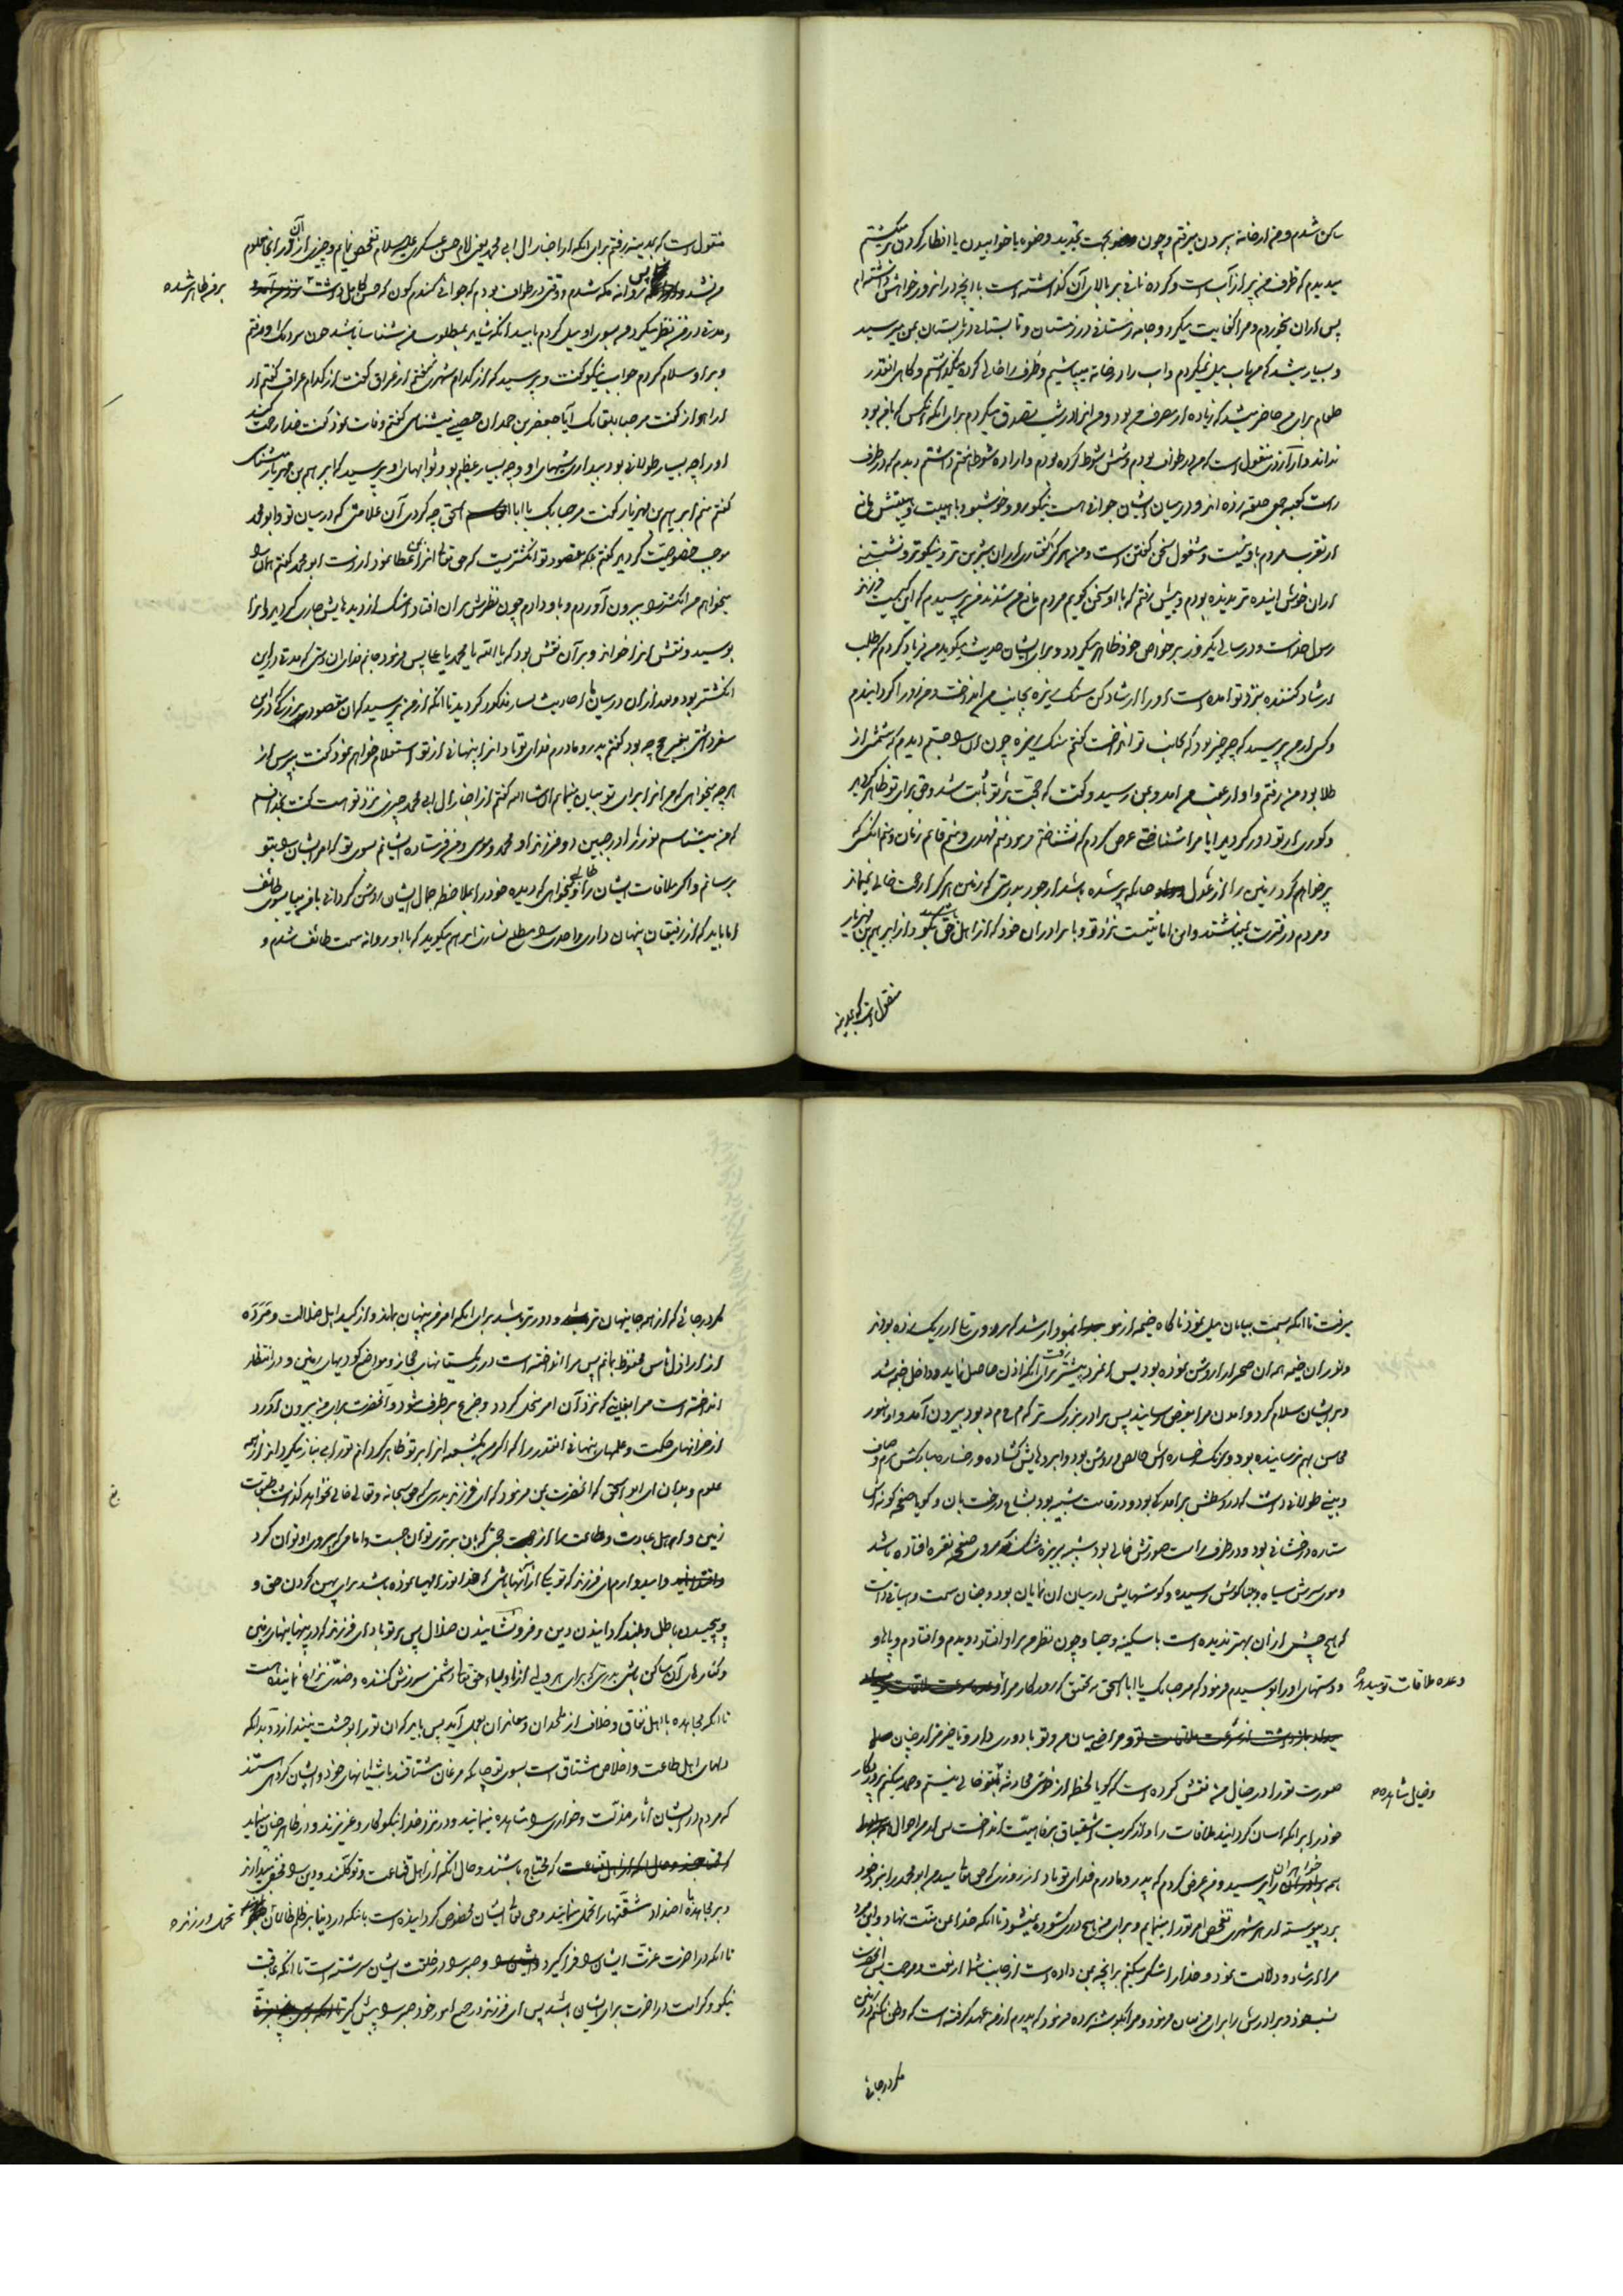 ساکن شدم و من از خانه بیرون میرفتم و چون بجهت تجدید وضوء یا خوابیدن یا افطار کردن برمیگشتم
میدیدم که ظرف من پر از آب است و گرده نانی بر بالای آن گذاشته است با آنچه در آنروز خواهش داشته‌ام
پس از آن میخوردم و مرا کفایت میکرد و جامه زمستانی در زمستان و تابستانی در تابستان بمن میرسید
و بسیار میشد که من بآب میل نمیکردم و آب را در خانه میپاشیدم و ظرف را خالی کرده میگذاشتم و گاهی آنقدر
طعام برای من حاضر میشد که زیاده از مصرف من بود و من آنرا در شب تصدق میکردم برای آنکه آنکس که با من بود
نداند و از آزدی منقول است که من در طواف بودم و شش شوط کرده بودم و اراده شوط هفتم داشتم دیدم که در طرف
راست کعبه جمعی حلقه زده‌اند و در میان ایشان جوانی است نیکورو و خوشبو و با هیبت و با هیبتش
بمردم باو نیست و مشغول سخن گفتن است و من هرگز گفتاری از آن شیرین‌تر و نیکوتر و نشستنی
از آن خوش آینده‌تر ندیده بودم و پیش رفتم که با او سخن گویم مردم مانع من شدند من پرسیدم که این کیست گفتند فرزند
رسول خداست و در سالی یکروز بر خواص خود ظاهر میگردد و برای ایشان حدیث میگوید من فریاد کردم که طلب
ارشاد کننده نزد تو آمده است او را ارشاد کن سنگ ریزه بجانب من انداخت و من رو را گردانیدم
و کسی از من پرسید که چه چیز بود که بجانب تو انداخت گفتم سنگ ریزه چون آنرا جستم دیدم که شمشی از
طلا بود من رفتم و او از عقب من آمد و بمن رسید و گفت که حجت بر تو ثابت شد و حق برای تو ظاهر گردید
و کوری از تو دور گردید آیا مرا شناختی عرض کردم که نشناختم فرمود منم مهدی و منم قائم زمان و منم آنکس که
پر خواهم کرد زمین را از عدل چنانکه پر شده باشد از جور بدرستی که زمین هرگز از حجت خالی نمیماند
و مردم در فترت نمیباشند و این امانتیست نزد تو با برادران خود که از اهل حق باشند بگو و از ابراهیم بن مهزیار
منقول است که بمدینه
منقول است که بمدینه رفتم برای آنکه از اخبار آل ابی محمد یعنی امام حسن عسکری علیه السلام تفحص نمایم و چیزی از آن در آنجا معلوم
من نشد پس روانه مکه شدم و وقتی در طواف بودم که جوانی گندم‌گون که حسن کامل داشت
بر من ظاهر شده
و مدتی در من نظر میکرد من بسوی او میل کردم بامید آنکه شاید بمطلوب من شناسا باشد چون نزدیک او رفتم
و بر او سلام کردم جواب نیکو گفت و پرسید که از کدام شهری گفتم از عراق گفت از کدام عراق گفتم از
اهواز گفت مرحبا بلقائک آیا جعفر بن حمدان حصینی میشناسی گفتم وفات نمود گفت خدا رحمت کند
او را چه بسیار طولانی بود بیداری شبهای او و چه بسیار عظیم بود ثوابهای او پرسید که ابراهیم بن مهزیار میشناسی
گفتم منم ابراهیم بن مهزیار گفت مرحبا بک یا ابا اسحق چه کردی آن علامتی که در میان تو و ابو محمد
موجب خصوصیت گردید گفتم بلکه مقصود تو انگشتریست که حق تعالی آنرا بمن عطا نمود از دست ابو محمد گفتم همان
میخواهم من انگشتر را بیرون آوردم و باو دادم چون نظرش بر آن افتاد اشک از دیده‌هایش جاری گردید و آنرا
بوسید و نقش آنرا خواند و بر آن نقش بود که یا الله یا محمد یا علی پس فرمود جانم فدای آن دستی که مدتها در این
انگشتر بود و بعد از آن در میان ما احادیث بسیار مذکور گردید تا آنکه از من پرسید که آن مقصود بزرگ که در این
سفر داشتی بغیر حج چه بود گفتم پدر و مادرم فدای تو باد آنرا پنهانی از تو استعلام خواهم نمود گفت بپرس از
هر چه میخواهی که من آنرا برای تو بیان مینمایم ان شاء الله گفتم از اخبار آل ابی محمد چیزی نزد تو هست گفت بخدا قسم
که من میشناسم نور را در جبین دو فرزند او محمد و موسی و من فرستاده ایشانم بسوی تو که امر ایشان را بتو
برسانم و اگر ملاقات ایشان را طالبی و میخواهی که دیده خود را بملاحظه جمال ایشان روشن گردانی با من بیا بسوی طائف
اما باید که از رفیقان پنهان داری و احدی را مطلع نسازی ابراهیم میگوید که با او روانه سمت طائف شدم و
میرفت تا آنکه بسمت بیابان میل نمود ناگاه خیمه از مو نمودار شد که بر روی تلی از ریگ زده بودند
و نور آن خیمه همه آن صحرا را روشن نموده بود پس آنمرد پیشتر رفت برای آنکه اذن حاصل نماید و داخل خیمه شد
و بر ایشان سلام کرد و آمدن مرا بعرض رسانید پس برادر بزرگتر که م ح م د بود بیرون آمد و او هنوز
محاسن بهم نرسانیده بود و رنگ رخساره‌اش خالص و روشن بود و ابروهایش گشاده و رخساره مبارکش نرم و صاف
و بینی طولانی داشت که در وسطش برآمدگی بود و در قامت شبیه بود بشاخ درخت بان و گویا صفحه گونه‌اش
ستاره درخشانی بود و در طرف راست صورتش خالی بود شبیه بریزه مشک که بر روی صفحه نقره افتاده باشد
و موی سرش سیاه و تا بنا گوش رسیده و گوشهایش در میان آن نمایان بود و چنان سمت و هیأتی داشت
که هیچ چشم از آن بهتر ندیده است با سکینه و حیا و چون نظر من بر او افتاد دویدم و افتادم و پاها و
و دستهای او را بوسیدم فرمود که مرحبا بک یا ابا اسحق بتحقیق که روزگار مرا
وعده ملاقات تو میداد
و من در میان من و تو با دوری دار و تاخیر مزار چنان
صورت تو را در خیال من نقش کرده است که گویا لحظه از خوشی محادثه تو خالی نیستم و حمد میکنم پروردگار
و خیال مشاهده
خود را بر آنکه آسان گردانید ملاقات را و از کربت اشتیاق برفاهیت انداخت پس از من احوال
همه برادران را پرسید و من عرض کردم که پدر و مادرم فدای تو باد از روزی که حق تعالی سید من ابو محمد را نزد خود
برد پیوسته از هر شهری تفحص امر تو را مینمایم و برای من هیچ دری گشوده نمیشود تا آنکه خدا بمن منت نهاد و این مرد
مرا ارشاد و دلالت نمود و خدا را شکر میکنم بر آنچه بمن داده است از جانب شما از نعمت و مرحمت پس آنحضرت
نسب خود و برادرش را برای من بیان فرمود و مرا بگوشه برده فرمود که پدرم از من عهد گرفته است که وطن نکنم در زمین
مگر در جائی
مگر در جائی که از همه جا پنهان‌تر و دورتر باشد برای آنکه امر من پنهان بماند و از کید اهل ضلالت و مرده
از اراذل ناس محفوظ بمانم پس مرا انداخته است در ریگستانهای حجاز و مواضع گودیهای زمین و در انتظار
انداخته است مرا بغایتی که نزد آن امر منحل گردد و جزع برطرف شود و آنحضرت برای من بیرون آورد
از خزانهای حکمت و علمهای پنهانی آنقدر را که اگر من یکشعبه آنرا بر تو ظاهر گردانم تو را بی نیاز میگرداند از همه
علوم و بدان ای ابو اسحق که آنحضرت بمن فرمود که ای فرزند بدرستی که حق سبحانه و تعالی خالی نخواهد گذاشت طبقات
زمین و اهل عبادت و طاعت را از حجتی که بآن برتری توان جست و امامی که پیروی او توان کرد
و امیدوارم ای فرزند که تو یکی از آنها باشی که خدا تو را مهیا نموده باشد برای پهن کردن حق و
و پیچیدن باطل و بلند گردانیدن دین و فرونشانیدن ضلال پس بر تو باد ای فرزند که در پنهانیهای زمین
و کنارهای آن ساکن باشی بدرستی که برای هر ولی از اولیاء حق تعالی دشمنی سرزنش کننده و ضدی نزاع نماینده است
تا آنکه مجاهده با اهل نفاق و خلاف از ملحدان و معاندان بعمل آید پس باید که آن تو را بوحشت نیندازد و بدانکه
دلهای اهل طاعت و اخلاص مشتاق است بسوی تو چنانکه مرغان مشتاقند بآشیانهای خود و ایشان گروهی هستند
که مردم در ایشان آثار مذلت و خواری را مشاهده مینمایند و در نزد خدا نیکوکار و عزیزند و در ظاهر چنان مینماید
که محتاج باشند و حال آنکه از اهل قناعت و توکلند و دین را میدارند
و بر مجاهده با اضداد مشقتها را تحمل مینمایند و حق تعالی ایشان مخصوص گردانیده است بآنکه در دنیا بر ظلم ظالمان
تحمل ورزنده
تا آنکه در آخرت عزت ایشان را فراگیرد و صبر را در خلقت ایشان سرشته است تا آنکه عاقبت
نیکو و کرامت در آخرت برای ایشان باشد پس ای فرزند در جمیع امور خود صبر را پیش گیر